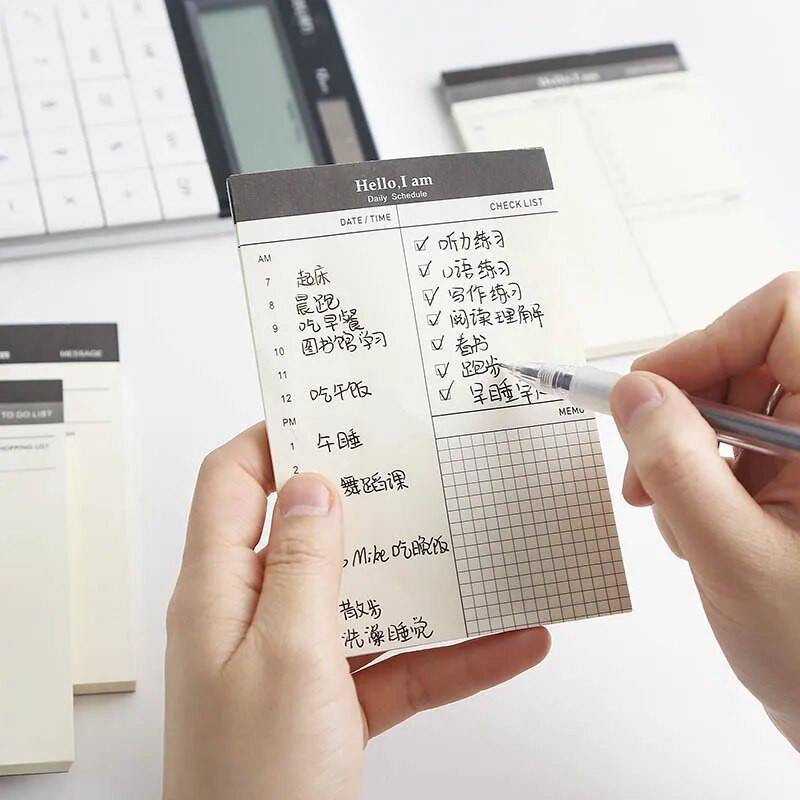 Hello,I am
Daily Schedule
DATE/TIME
AM
7 起床
8 晨跑
9 吃早餐
10 图书馆学习
11
12 吃午饭
PM
1 午睡
2
舞蹈课
Mike吃晚饭
散步
洗澡睡觉
CHECK LIST
听力练习
口语练习
写作练习
阅读理解
看书
跑步
早睡早
MEMO
Hello,I am
MESSAGE
TO DO LIST
HOPPING LIST